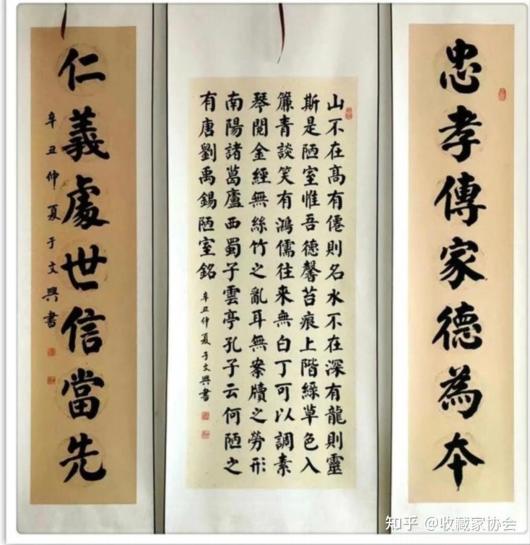 忠孝傳家德為夲
山不在高有僊則名水不在深有龍則靈
斯是陋室惟吾德馨苔痕上階綠草色入
簾青談笑有鴻儒往來無白丁可以調素
琴閱金經無絲竹之亂耳無案牘之勞形
南陽諸葛廬西蜀子雲亭孔子云何陋之
有唐劉禹錫陋室銘 辛丑仲夏于文興書
仁義處世信當先
辛丑仲夏于文興書
知乎 @收藏家协会